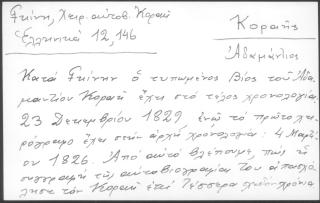 Γκίνη, Χειρ. αὐτοβ. Κοραῆ
Ἑλληνικά 12, 146
Κοραῆς
Ἀδαμάντιος
Κατά Γκίνην ὁ τυπωμένος Βίος τοῦ Ἀδα-
μαντίου Κοραῆ ἔχει στό τέλος χρονολογία
23 Δεκεμβρίου 1829, ἐνῶ τό πρωτοχει-
ρόγραφο ἔχει στήν ἀρχή χρονολογία: 4 Μαρτί-
ου 1826. Ἀπό αὐτό βλέπουμε, πώς ἡ
συγγραφή τῆς αὐτοβιογραφίας του ἀπασχό-
λησε τόν Κοραῆ ἐπί τέσσερα χρόνια